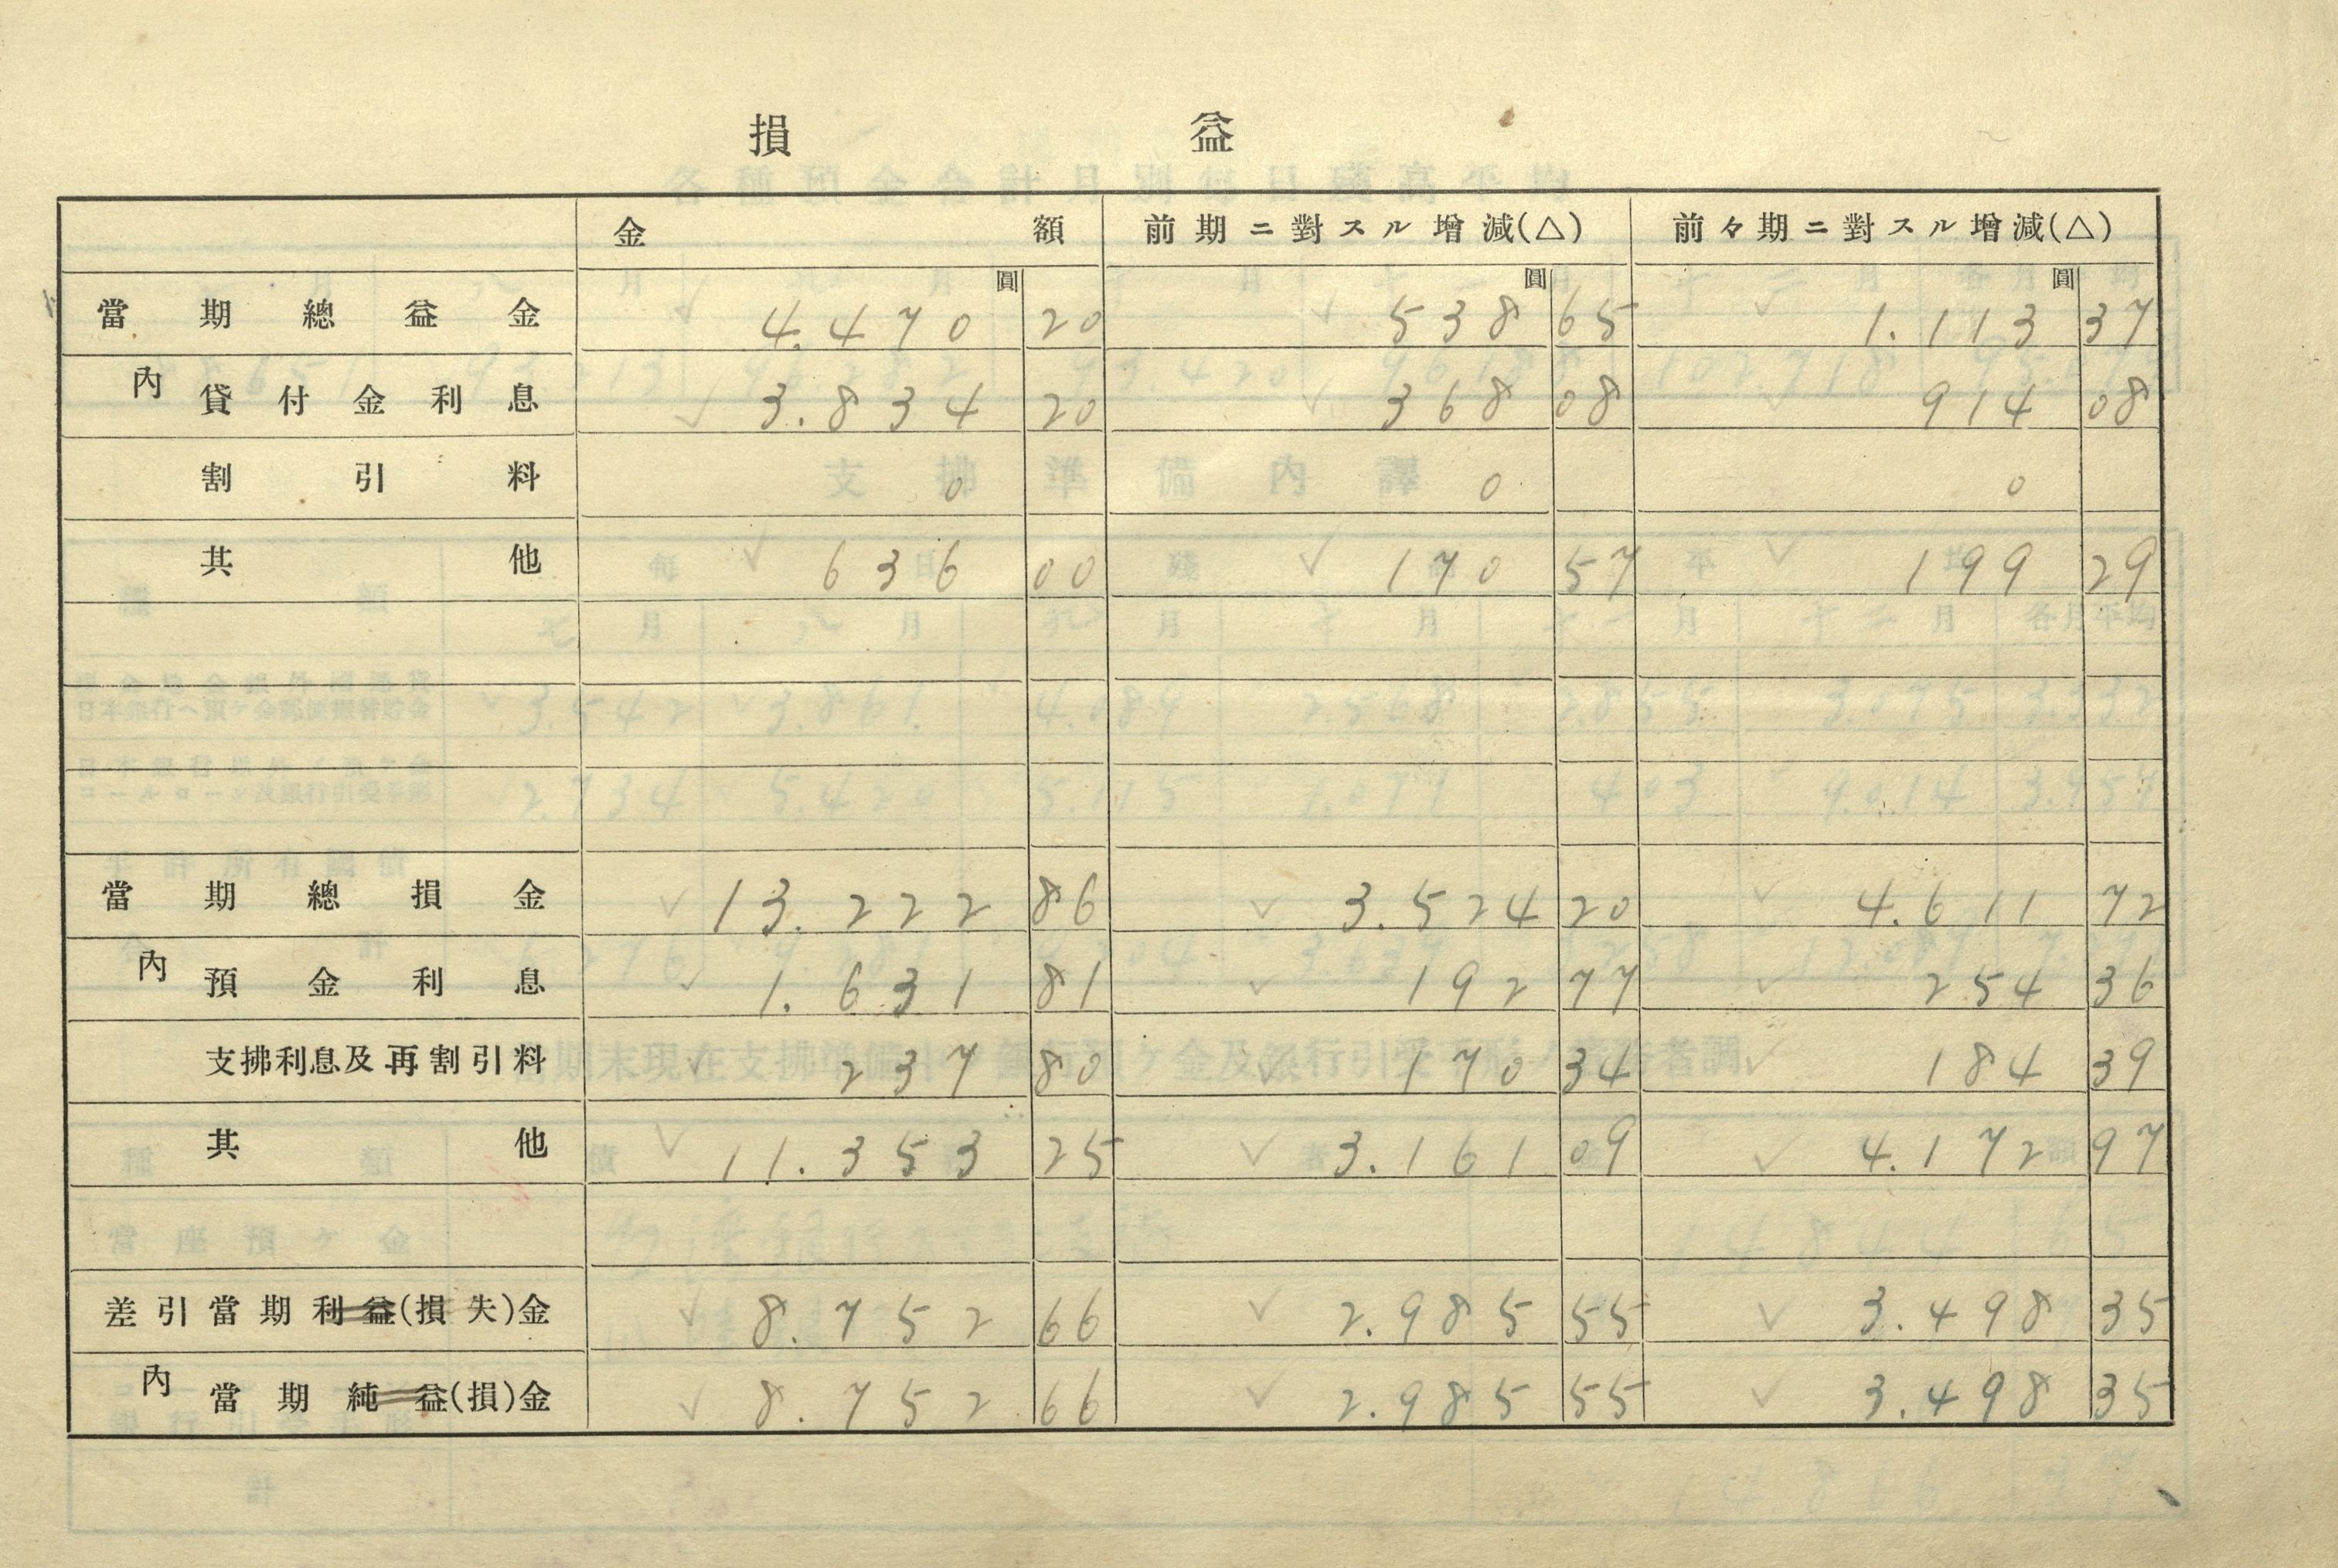 損 益
金額 前期ニ對スル增減(△) 前々期ニ對スル增減(△)
圓 圓 圓
當期總益金 4.470 20 538 65 1.113 37
內 貸付金利息 3.834 20 368 08 914 08
割引料 0 0 0
其他 636 00 170 57 199 29
當期總損金 13.222 86 3.524 20 4.611 72
內 預金利息 1.631 81 192 77 254 36
支拂利息及再割引料 237 80 170 34 184 39
其他 11.353 25 3.161 09 4.172 97
差引當期利益(損失)金 8.752 66 2.985 55 3.498 35
內 當期純益(損)金 8.752 66 2.985 55 3.498 35